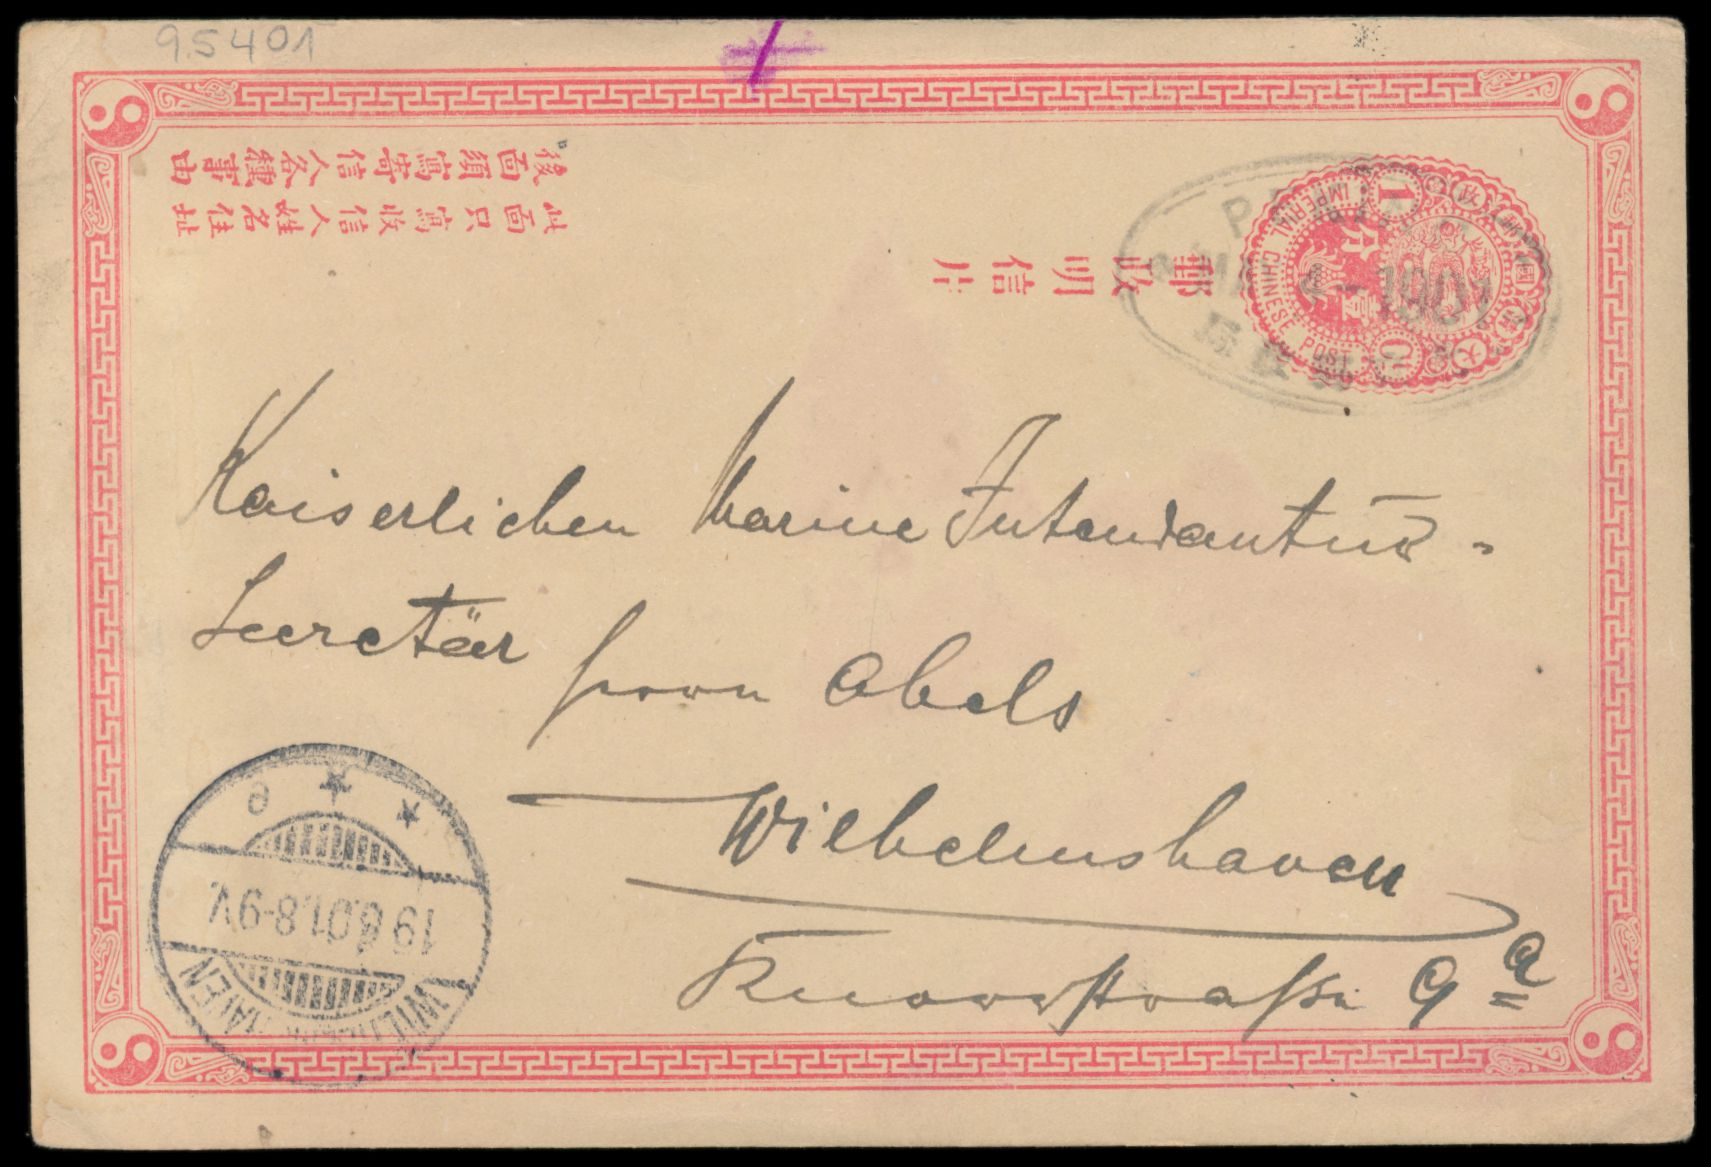 95401
後面須寫寄信人各種事由
此面只寫收信人姓名住址
郵政明信片
IMPERIAL CHINESE POST
1
分壹
MAY 4-1901
Kaiserlichen Marine Intendantur-
Secretär Herrn Abels
Wilhelmshaven
Knorrstraße 9a
WILHELMSHAVEN
19.6.01.8-9V.
e